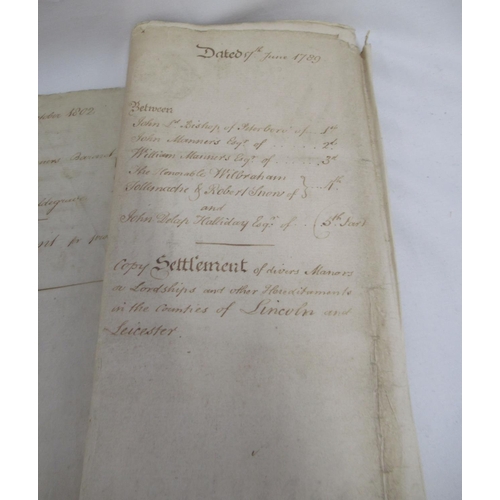 Dated 9th June 1789
Between
John Ld Bishop of Peterboro' of 1st
John Manners Esqr. of 2d
William Manners Esqr. of 3d
The Honorable Wilbraham
Tollemache & Robert of 4th
and
John Delap Halliday Esqr. of 5th Part
Copy Settlement of divers Manors
or Lordships and other Hereditaments
in the Counties of Lincoln and
Leicester
1802